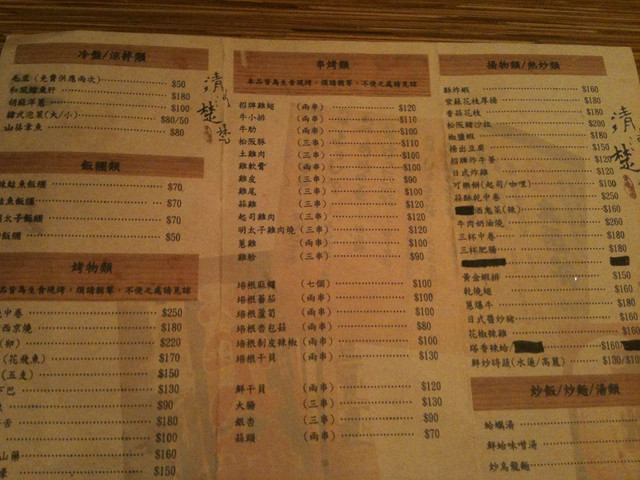 冷盤/涼拌類
毛豆(免費供應兩次) $50
和風鱈魚肝 $180
胡麻洋蔥 $100
韓式泡菜(大/小) $80/50
山葵章魚 $80
飯糰類
鮭魚飯糰 $70
魚飯糰 $70
明太子飯糰 $70
飯糰 $50
烤物類
品皆為生食現烤，煩請稍等，不便之處請見諒
中卷 $250
西京燒 $180
(卵) $220
(花飛魚) $170
(五支) $150
下巴 $130
$90
舌 $180
$100
山藥 $160
$150
串烤類
本品皆為生食現烤，煩請稍等，不便之處請見諒
招牌雞翅 (兩串) $120
牛小排 (兩串) $110
牛肋 (兩串) $100
松阪豚 (三串) $110
土雞肉 (三串) $100
雞軟骨 (三串) $100
雞皮 (三串) $90
雞尾 (三串) $100
蒜雞 (三串) $120
起司雞肉 (三串) $120
明太子雞肉燒 (三串) $120
蔥雞 (兩串) $100
雞胗 (三串) $90
培根麻糬 (七個) $100
培根蕃茄 (兩串) $100
培根蘆筍 (兩串) $100
培根杏包菇 (兩串) $80
培根剝皮辣椒 (兩串) $100
培根干貝 (兩串) $130
鮮干貝 (兩串) $120
大腸 (三串) $130
銀杏 (三串) $90
蒜頭 (兩串) $70
揚物類/熱炒類
酥炸蝦 $160
紫蘇花枝厚揚 $180
香蒜花枝 $180
松阪豬沙拉 $200
椒鹽蝦 $180
揚出豆腐 $150
招牌炸牛蒡 $120
日式炸雞 $120
可樂餅(起司/咖哩) $100
蒜酥乾中卷 $250
酒鬼菜(辣) $160
牛肉奶油燒 $260
三杯中卷 $180
三杯肥腸 $180
黃金蝦排 $150
乾燒翅 $160
蔥爆牛 $180
日式醬炒豬 $160
花椒辣雞 $160
塔香辣蛤 $160
鮮炒時蔬(水蓮/高麗) $130/$10
炒飯/炒麵/湯類
蛤蠣湯
鮮蛤味噌湯
炒烏龍麵
清
楚
清
楚